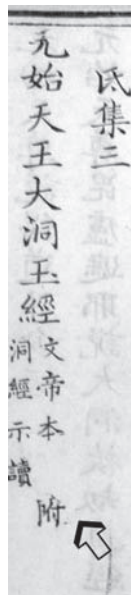 氐集三
元始天王大洞玉經文帝本
洞經示讀
附